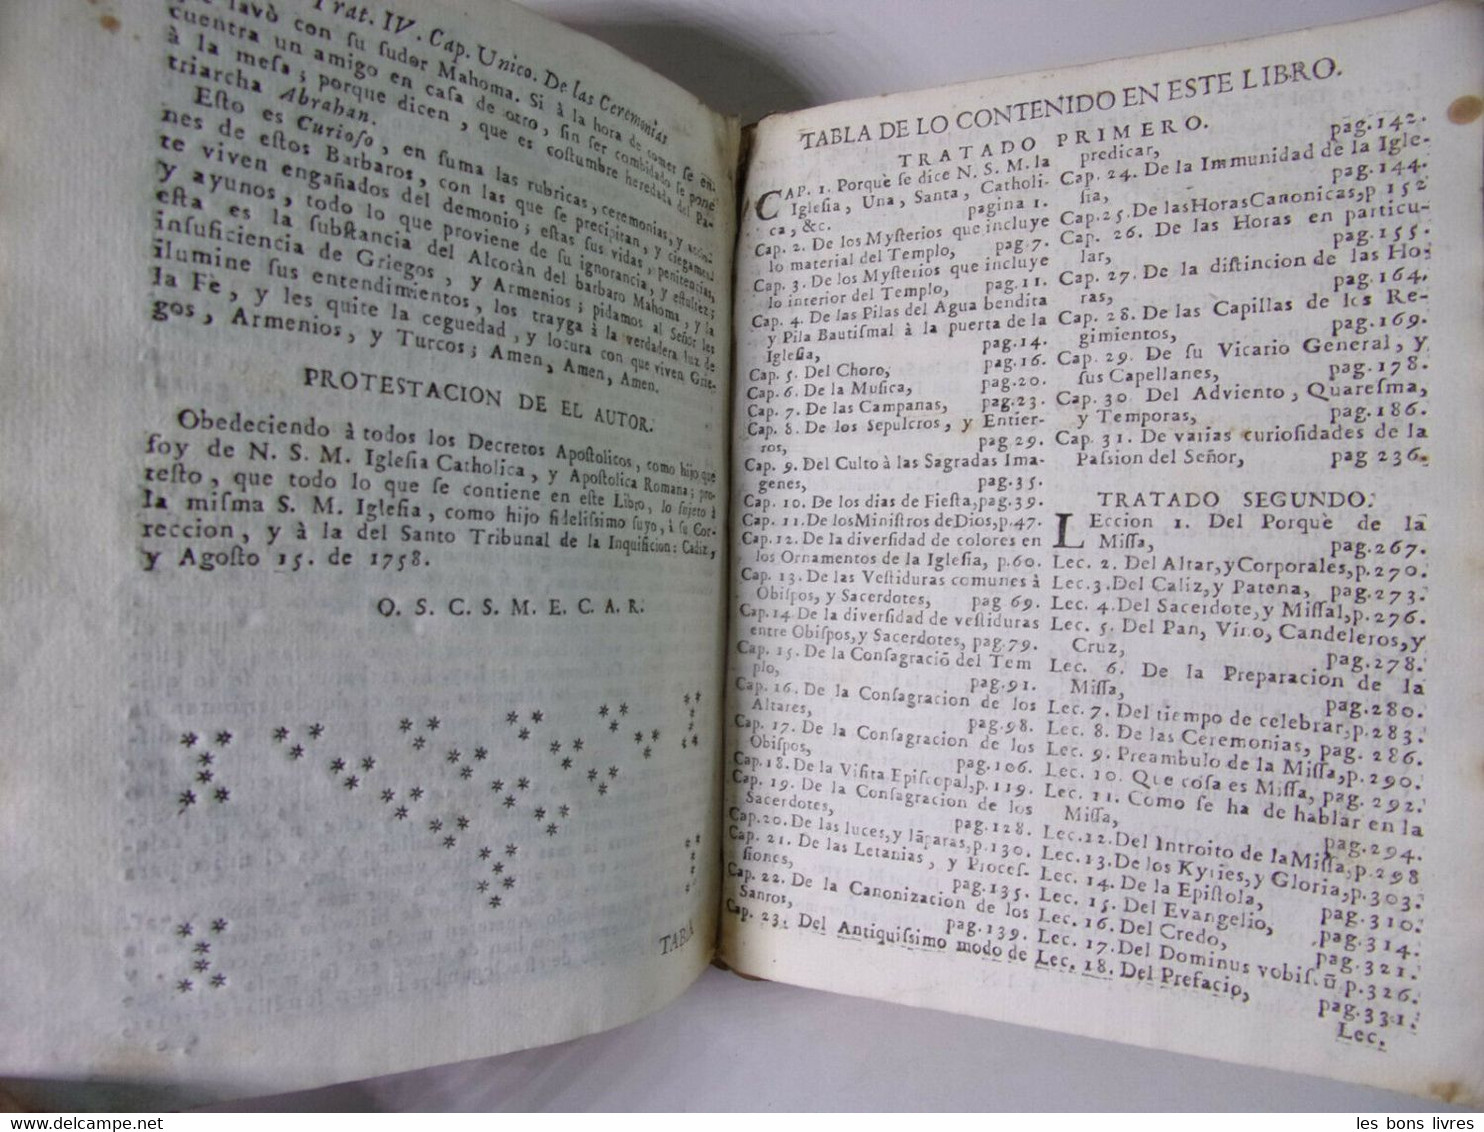 Trat. IV. Cap. Unico. De las Ceremonias
lavò con ſu ſudor Mahoma. Si à la hora de comer ſe en-
cuentra un amigo en caſa de otro, ſin ſer combidado ſe pone
à la meſa; porque dicen, que es coſtumbre heredada del Pa-
triarcha Abrahan.
Eſto es Curioſo, en ſuma las rubricas, ceremonias, y
nes de eſtos Barbaros, con las que ſe precipitan, y ciegamen-
te viven engañados del demonio; eſtas ſus vidas, penitencias,
y ayunos, todo lo que proviene de ſu ignorancia, y eſtultez;
eſta es la ſubſtancia del Alcoràn del barbaro Mahoma, y la
inſuficiencia de Griegos, y Armenios; pidamos al Señor les
ilumine ſus entendimientos, los trayga à la verdadera luz de
la Fè, y les quite la ceguedad, y locura con que viven Grie-
gos, Armenios, y Turcos; Amen, Amen, Amen.
PROTESTACION DE EL AUTOR.
Obedeciendo à todos los Decretos Apoſtolicos, como hijo que
ſoy de N. S. M. Igleſia Catholica, y Apoſtolica Romana; pro-
teſto, que todo lo que ſe contiene en eſte Libro, lo ſujeto à
la miſma S. M. Igleſia, como hijo fideliſſimo ſuyo, à ſu Cor-
reccion, y à la del Santo Tribunal de la Inquiſicion: Cadiz,
y Agoſto 15. de 1758.
O. S. C. S. M. E. C. A. R.
TABLA
TABLA DE LO CONTENIDO EN ESTE LIBRO.
TRATADO PRIMERO.
CAP. 1. Porquè ſe dice N. S. M. la
Igleſia, Una, Santa, Catholi-
ca, &c. pagina 1.
Cap. 2. De los Myſterios que incluye
lo material del Templo, pag. 7.
Cap. 3. De los Myſterios que incluye
lo interior del Templo, pag. 11.
Cap. 4. De las Pilas del Agua bendita
y Pila Bautiſmal à la puerta de la
Igleſia, pag. 14.
Cap. 5. Del Choro, pag. 16.
Cap. 6. De la Muſica, pag. 20.
Cap. 7. De las Campanas, pag. 23.
Cap. 8. De los Sepulcros, y Entier-
ros, pag 29.
Cap. 9. Del Culto à las Sagradas Ima-
genes, pag. 35.
Cap. 10. De los dias de Fieſta, pag. 39.
Cap. 11. De los Miniſtros de Dios, p. 47.
Cap. 12. De la diverſidad de colores en
los Ornamentos de la Igleſia, p. 60.
Cap. 13. De las Veſtiduras comunes à
Obiſpos, y Sacerdotes, pag. 69.
Cap. 14 De la diverſidad de veſtiduras
entre Obiſpos, y Sacerdotes, pag. 79.
Cap. 15. De la Conſagraciõ del Tem
plo, pag. 91.
Cap. 16. De la Conſagracion de los
Altares, pag. 98.
Cap. 17. De la Conſagracion de los
Obiſpos, pag. 106.
Cap. 18. De la Viſita Epiſcopal, p. 119.
Cap. 19. De la Conſagracion de los
Sacerdotes, pag. 128.
Cap. 20. De las luces, y lãparas, p. 130.
Cap. 21. De las Letanias, y Proceſ-
ſiones, pag. 135.
Cap. 22. De la Canonizacion de los
Santos, pag. 139.
Cap. 23. Del Antiquiſſimo modo de
predicar, pag. 142.
Cap. 24. De la Immunidad de la Igle-
ſia, pag. 144.
Cap. 25. De las Horas Canonicas, p 152
Cap. 26. De las Horas en particu-
lar, pag. 155.
Cap. 27. De la diſtincion de las Ho-
ras, pag. 164.
Cap. 28. De las Capillas de los Re-
gimientos, pag. 169.
Cap. 29. De ſu Vicario General, y
ſus Capellanes, pag. 178.
Cap. 30. Del Adviento, Quareſma,
y Temporas, pag. 186.
Cap. 31. De varias curioſidades de la
Paſsion del Señor, pag 236.
TRATADO SEGUNDO.
LEccion 1. Del Porquè de la
Miſſa, pag. 267.
Lec. 2. Del Altar, y Corporales, p. 270.
Lec. 3. Del Caliz, y Patena, pag. 273.
Lec. 4. Del Sacerdote, y Miſſal, p. 276.
Lec. 5. Del Pan, Vino, Candeleros, y
Cruz, pag. 278.
Lec. 6. De la Preparacion de la
Miſſa, pag. 280.
Lec. 7. Del tiempo de celebrar, p. 283.
Lec. 8. De las Ceremonias, pag. 286.
Lec. 9. Preambulo de la Miſſa, p. 290.
Lec. 10. Que coſa es Miſſa, pag. 292.
Lec. 11. Como ſe ha de hablar en la
Miſſa, pag. 294.
Lec. 12. Del Introito de la Miſſa, p. 298
Lec. 13. De los Kyries, y Gloria, p. 303.
Lec. 14. De la Epiſtola, pag. 310.
Lec. 15. Del Evangelio, pag. 314.
Lec. 16. Del Credo, pag. 321.
Lec. 17. Del Dominus vobiſ.ũ p. 326.
Lec. 18. Del Prefacio, pag. 331.
Lec.
les bons livres